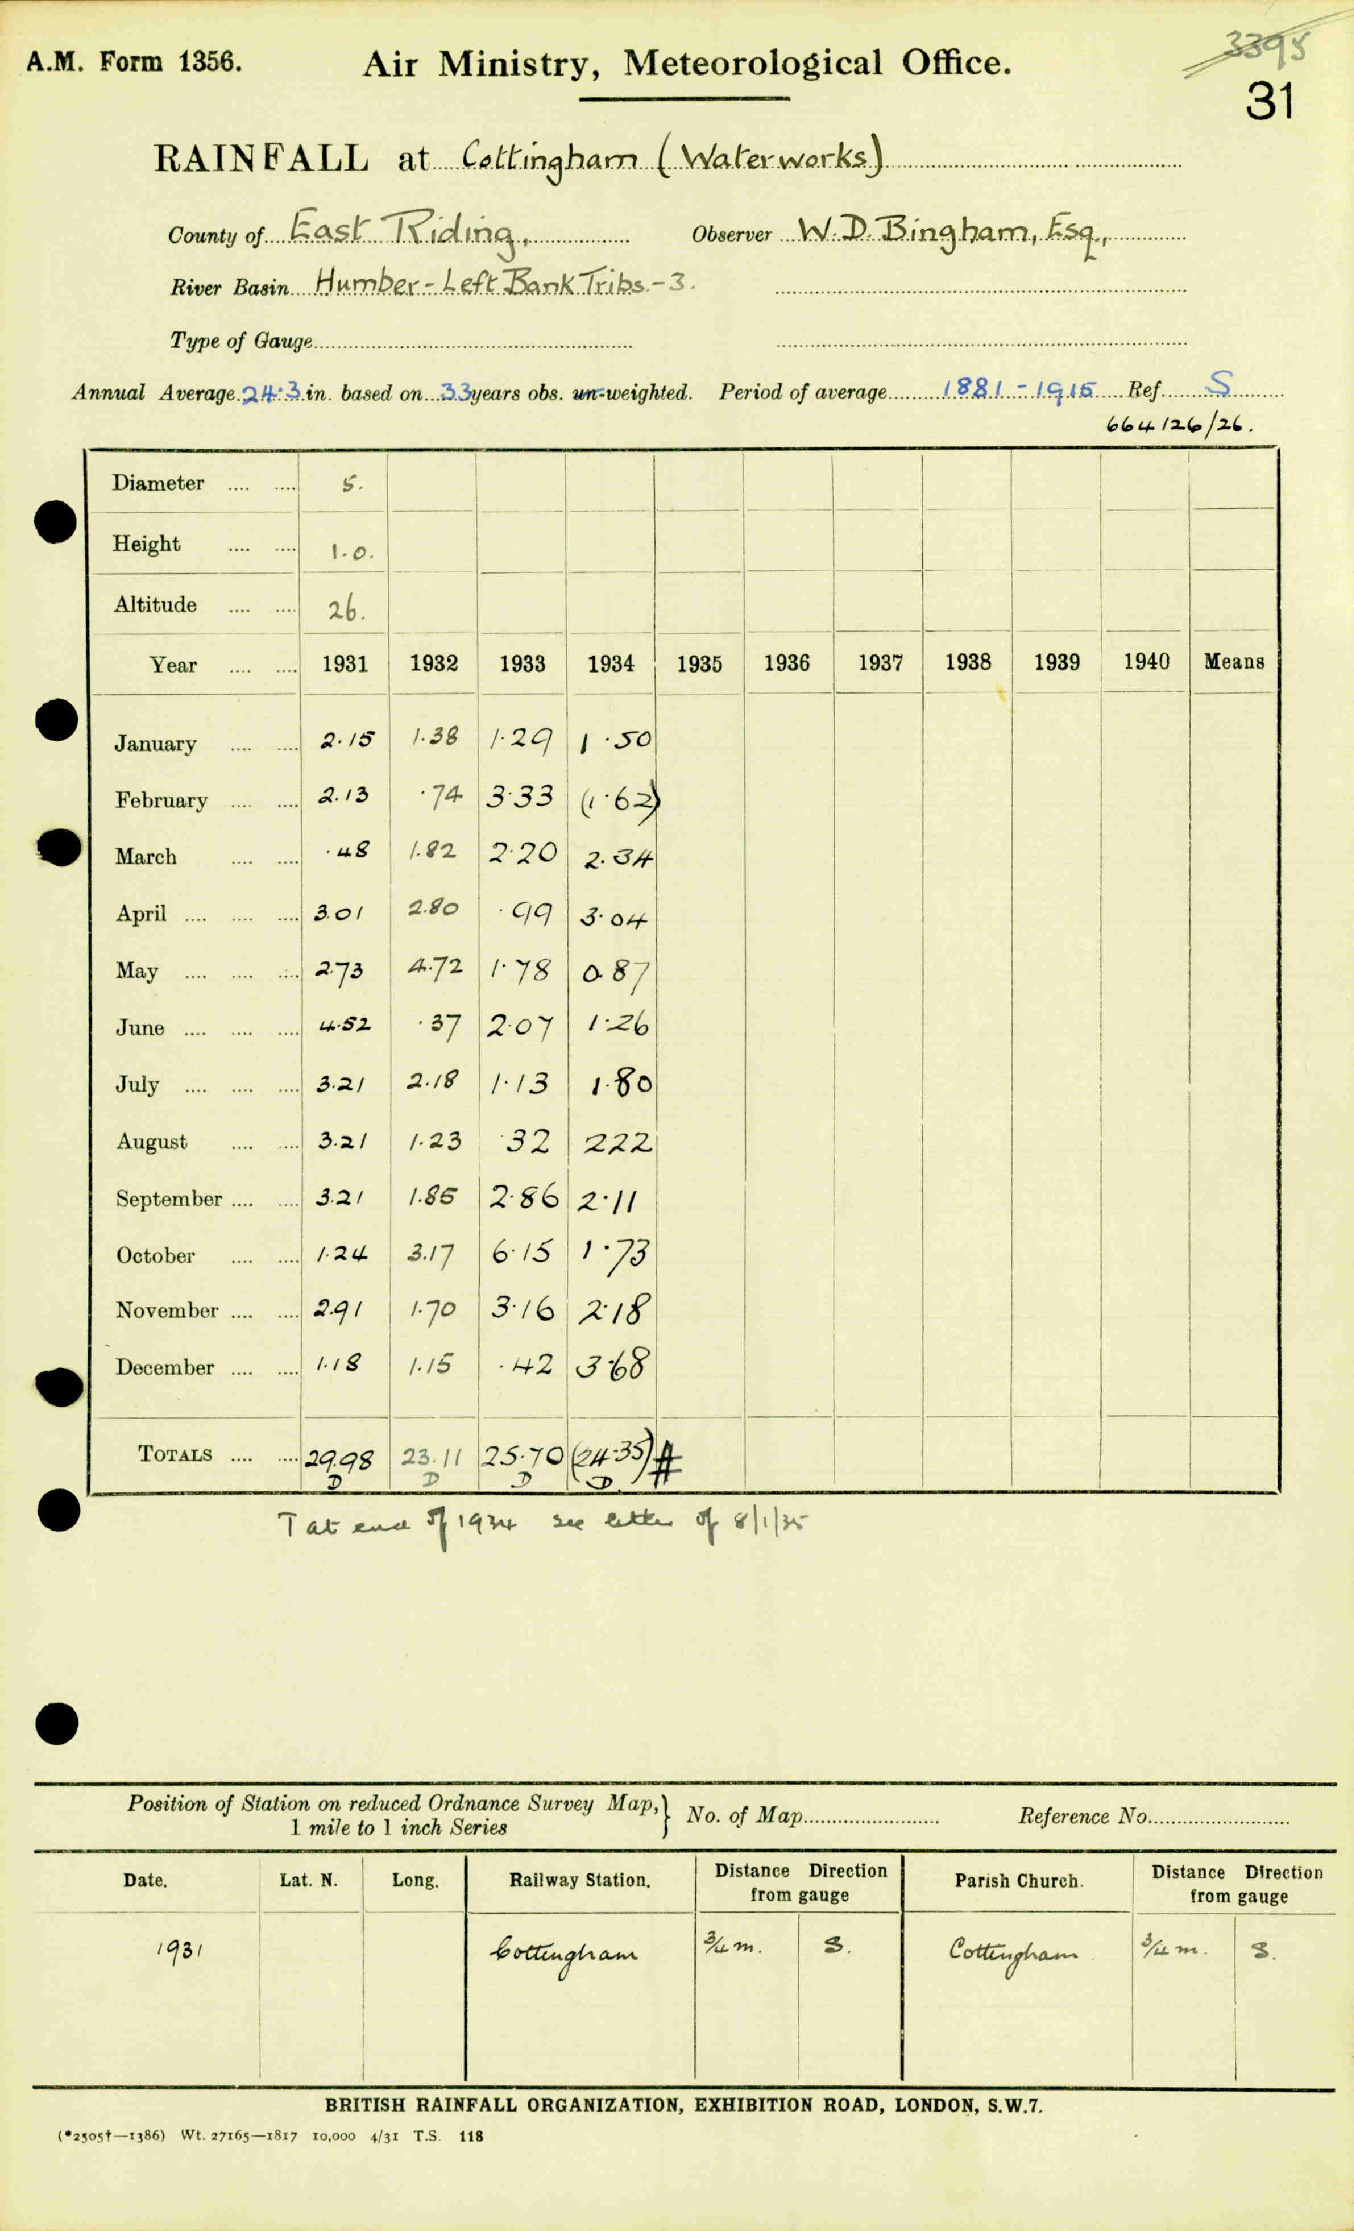 A.M. Form 1356.
Air Ministry, Meteorological Office.
3395
31
RAINFALL at Cottingham (Waterworks)
County of East Riding, Observer W.D. Bingham, Esq.,
River Basin Humber-Left Bank Tribs.-3.
Type of Gauge
Annual Average 24.3 in. based on 33 years obs. un-weighted. Period of average 1881-1915 Ref. S
664126/26.
Diameter 5.
Height 1.0.
Altitude 26.
Year 1931 1932 1933 1934 1935 1936 1937 1938 1939 1940 Means
January 2.15 1.38 1.29 1.50
February 2.13 .74 3.33 (1.62)
March .48 1.82 2.20 2.34
April 3.01 2.80 .99 3.04
May 2.73 4.72 1.78 0.87
June 4.52 .37 2.07 1.26
July 3.21 2.18 1.13 1.80
August 3.21 1.23 .32 2.22
September 3.21 1.85 2.86 2.11
October 1.24 3.17 6.15 1.73
November 2.91 1.70 3.16 2.18
December 1.18 1.15 .42 3.68
TOTALS 29.98 23.11 25.70 (24.35) #
D D D D
T at end of 1934 see letter of 8/1/35
Position of Station on reduced Ordnance Survey Map, } No. of Map Reference No.
1 mile to 1 inch Series
Date. Lat. N. Long. Railway Station. Distance Direction from gauge Parish Church. Distance Direction from gauge
1931 Cottingham 3/4 m. S. Cottingham 3/4 m. S.
BRITISH RAINFALL ORGANIZATION, EXHIBITION ROAD, LONDON, S.W.7.
(*2505†—1386) Wt. 27165—1817 10,000 4/31 T.S. 118